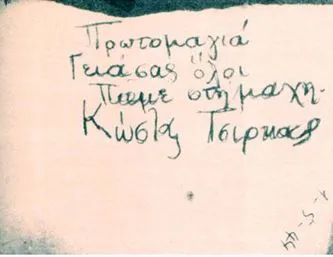 Πρωτομαγιά
Γειά σας όλοι
Πάμε στη μάχη.
Κώστας Τσίρκας
1-5-44